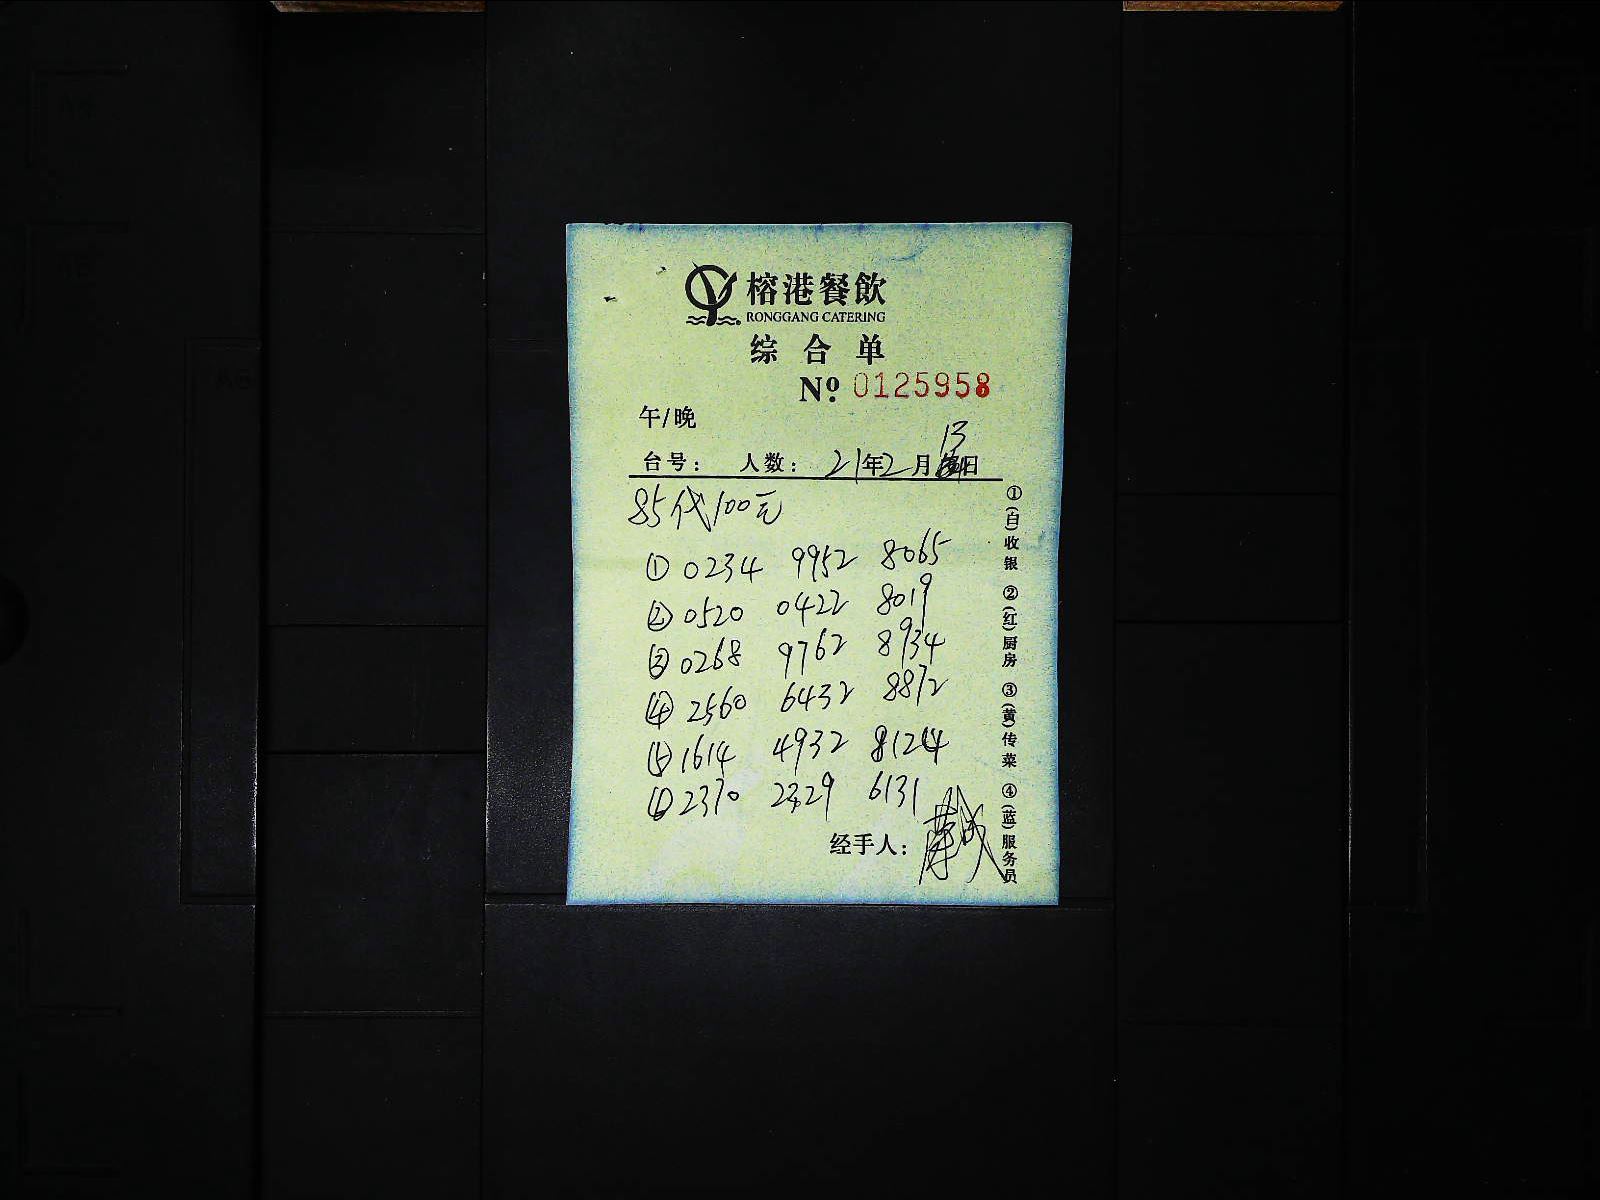 榕港餐飲
RONGGANG CATERING
综合单
Nº 0125958
午/晚
13
台号： 人数： 21年2月日
85代100元
① 0234 9952 8065
② 0520 0422 8019
③ 0268 9762 8934
④ 2560 6432 8872
⑤ 1614 4932 8124
⑥ 2370 2329 6131
经手人：
①(白)收银 ②(红)厨房 ③(黄)传菜 ④(蓝)服务员